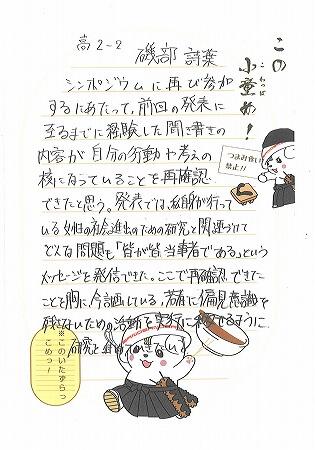 高2-2 磯部 詩葉
シンポジウムに再び参加
するにあたって、前回の発表に
至るまでに経験した聞き書きの
内容が自分の行動や考えの
核になっていることを再確認
できたと思う。発表では、私自身が行って
いる女性の社会進出のための研究と関連づけて
どんな問題も「皆が皆当事者である」という
メッセージを発信できた。ここで再確認できた
ことを胸に、今計画している、若者に偏見意識を
残さないための活動を実行に移せるように
研究を進めていきたいです
この
小童め!
こわっぱ
つまみ食い
禁止!!
※このいたずらっ
こめっ!